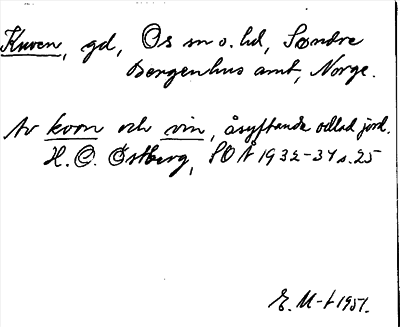 Kuven, gd, Os sn o. hd, Søndre
Bergenhus amt, Norge.
Av korn och vin, åsyftande odlad jord.
H. O. Østberg, SOÅ 1932-34 s. 25
E. M-t 1951.